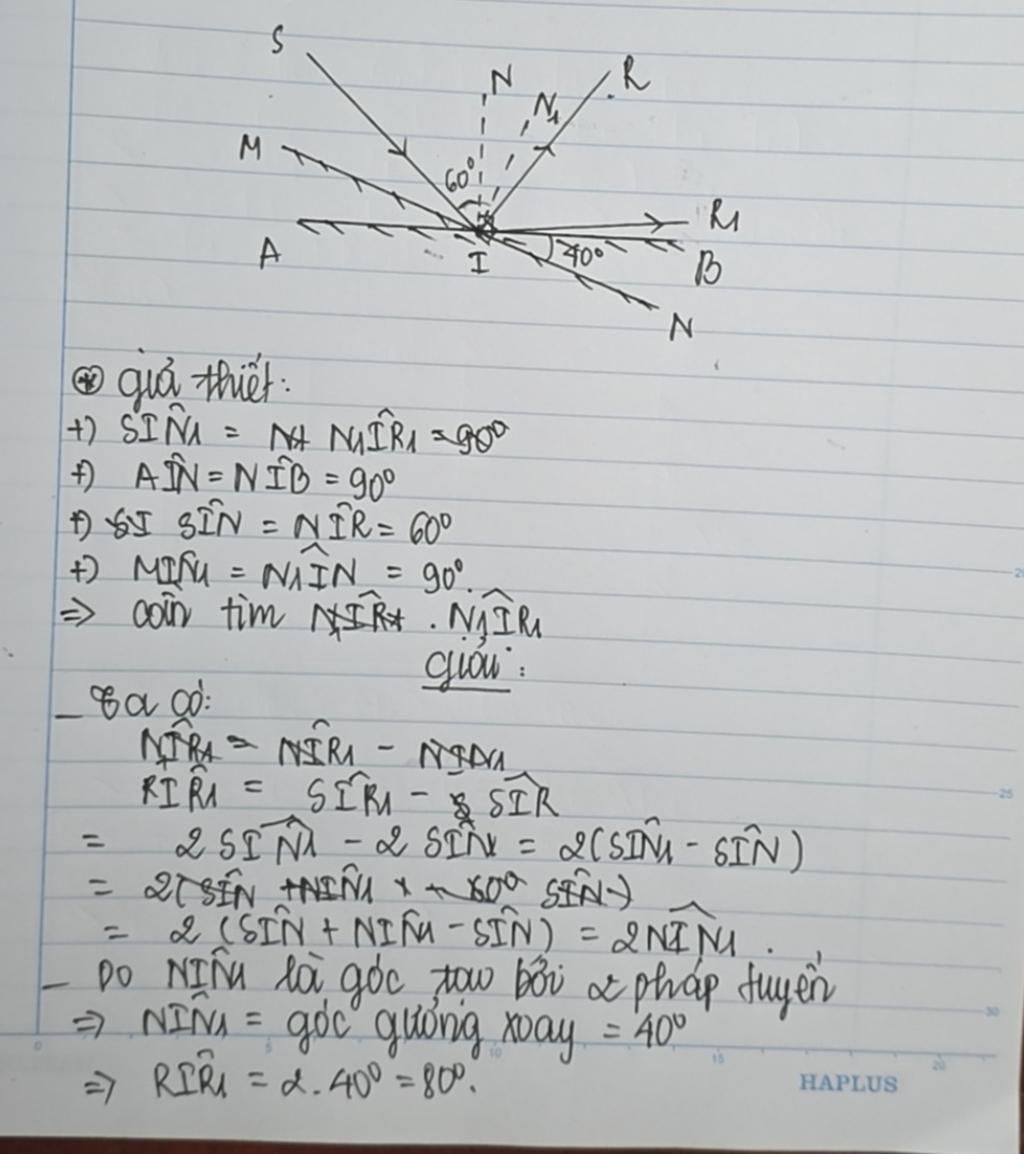 S
N
N1
R
M
60°
R1
A
I
40°
B
N
* giả thiết:
+) SIN̂1 = N1IR̂1 = 90°
+) AIN̂ = NIB̂ = 90°
+) SIN̂ = NIR̂ = 60°
+) MIN̂1 = N1IN̂ = 90°.
=> cần tìm N1IR̂1
giải:
_ Ta có:
NIR̂1 = NIR̂1 - NIN1
RIR̂1 = SIR̂1 - SIR̂
= 2 SIN̂1 - 2 SIN̂ = 2(SIN̂1 - SIN̂)
= 2(SIN̂ + NIN̂1 - 60° SIN̂)
= 2 (SIN̂ + NIN̂1 - SIN̂) = 2NIN̂1.
_ Do NIN̂1 là góc tạo bởi 2 pháp tuyến
=> NIN̂1 = góc gương xoay = 40°
=> RIR̂1 = 2.40° = 80°.
0
5
10
15
20
25
30
HAPLUS